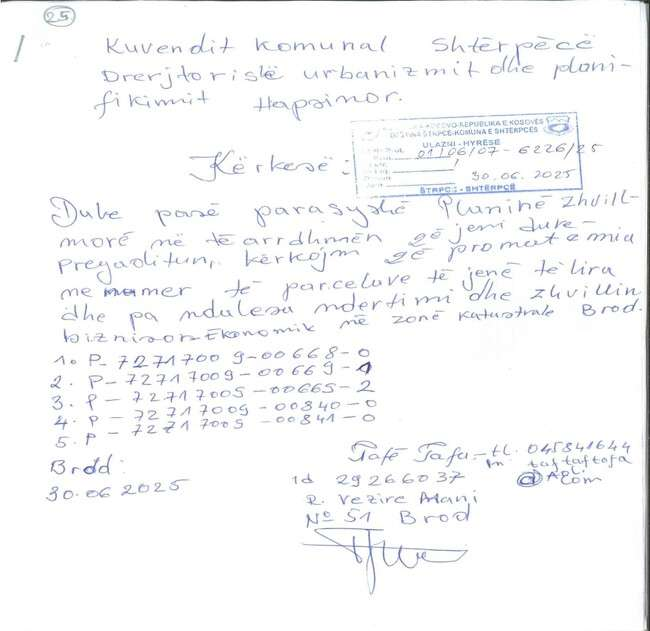 25
Kuvendit Komunal Shtërpëcë
Drerjtorisië urbanizmit dhe plani-
fikimit Hapsinor.
KOSOVO-REPUBLIKA E KOSOVËS
OPŠTINA ŠTRPCE-KOMUNA E SHTËRPCËS
ULAZNI - HYRËSE
01/06/07-6226/25
30.06.2025
ŠTRPCE - SHTËRPCË
Kërkesë:
Duke pasë parasyshë Planinë zhvill-
morë në të arrdhmën që jeni duke
pregaditun, kërkojm që pronat e mia
me numer të parcelave të jenë të lira
dhe pa ndulesa ndertimi dhe zhvillin
biznisor-Ekonomik në zonë katastrale Brod.
1. P-72717009-00668-0
2. P-72717009-00669-1
3. P-72717009-00665-2
4. P-72717009-00840-0
5. P-72717009-00841-0
Brod:
30.06 2025
Tafë Tafa-tl. 045841644
m. taftaftafa
@Aol.com
id 29266037
R. Vezire Mani
No 51 Brod